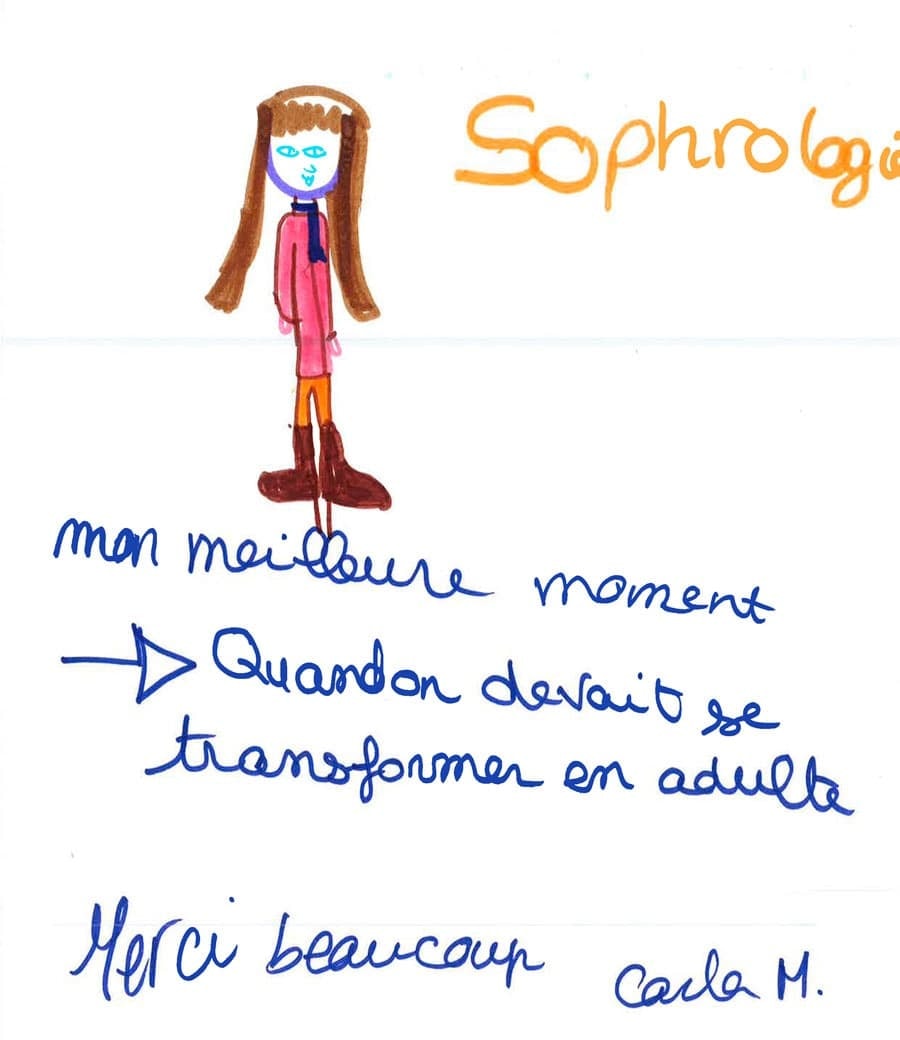 Sophrologie
mon meilleure moment
Quand on devait se
transformer en adulte
Merci beaucoup
Carla M.